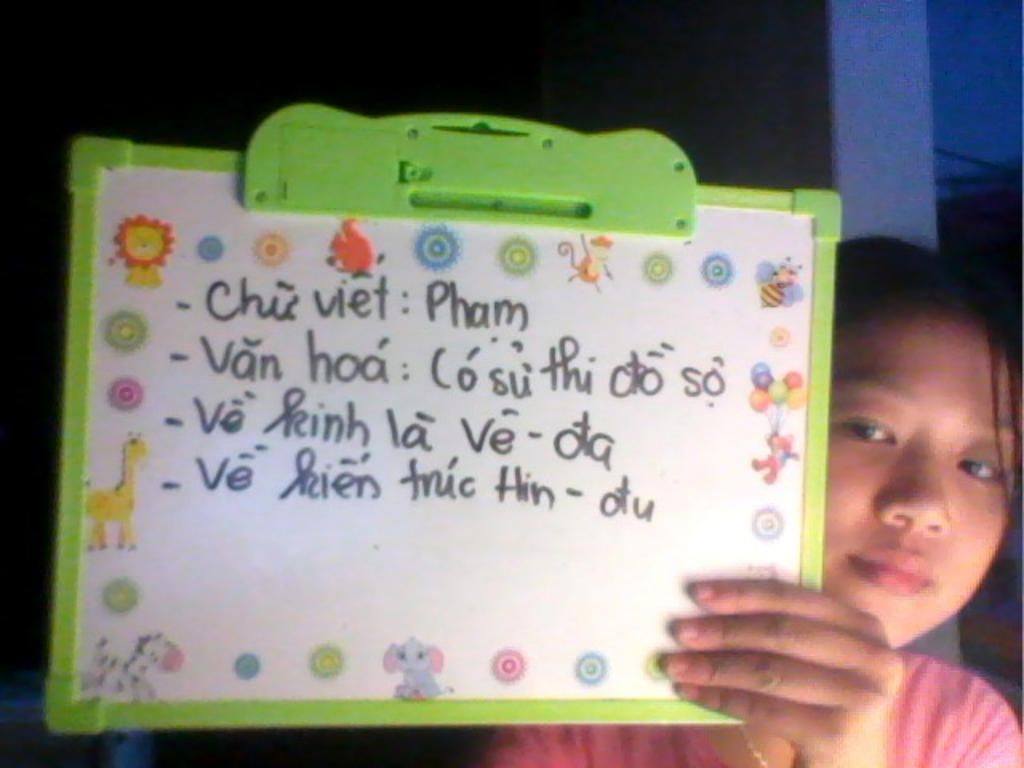 - Chữ viết: Phạm
- Văn hoá: Có sử thi đồ sộ
- Về kinh là Vê - đa
- Về kiến trúc Hin - đu